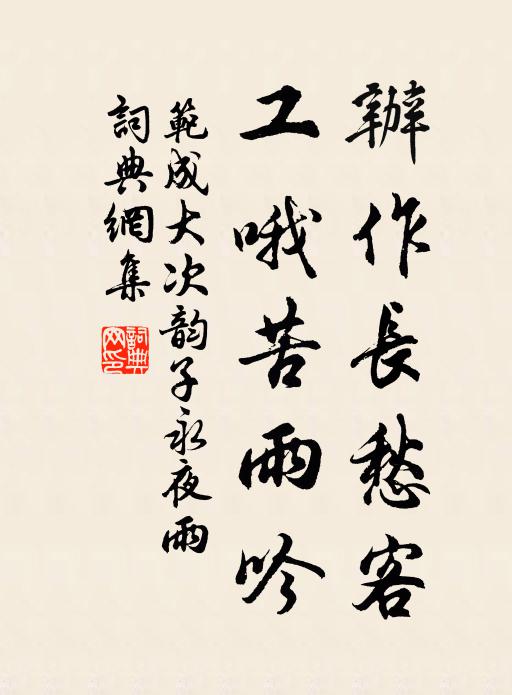 辦作長愁客
工哦苦雨吟
範成大次韵子永夜雨
詞典網集
詞典網印